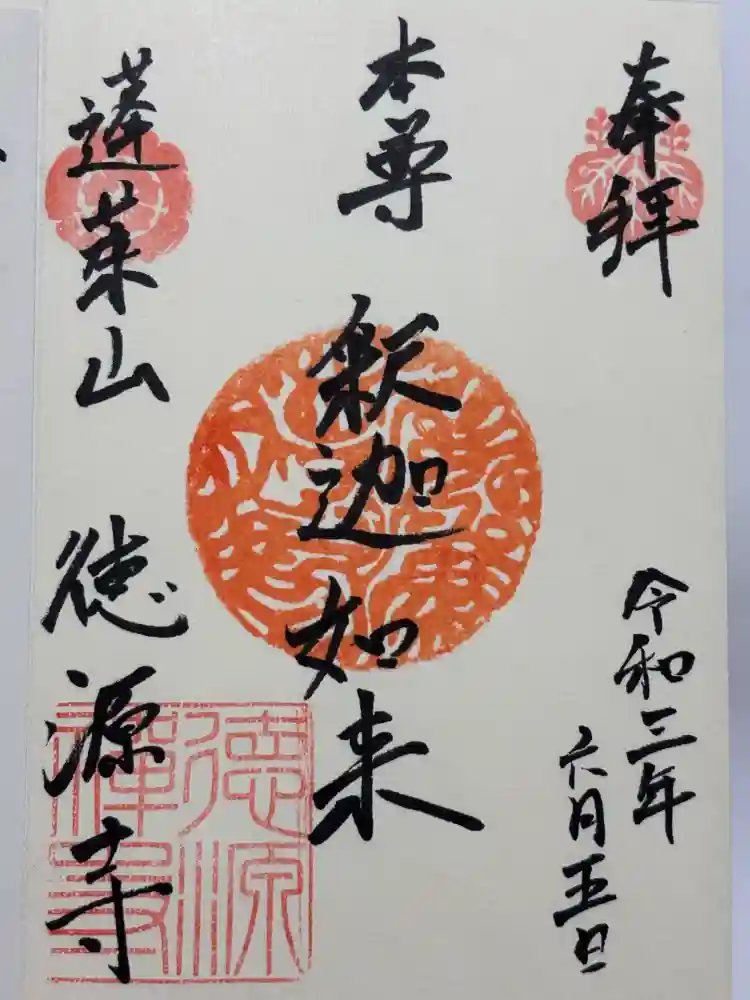 奉拝
令和三年
六月五日
本尊 釈迦如来
蓬莱山 徳源寺
徳源
禪寺